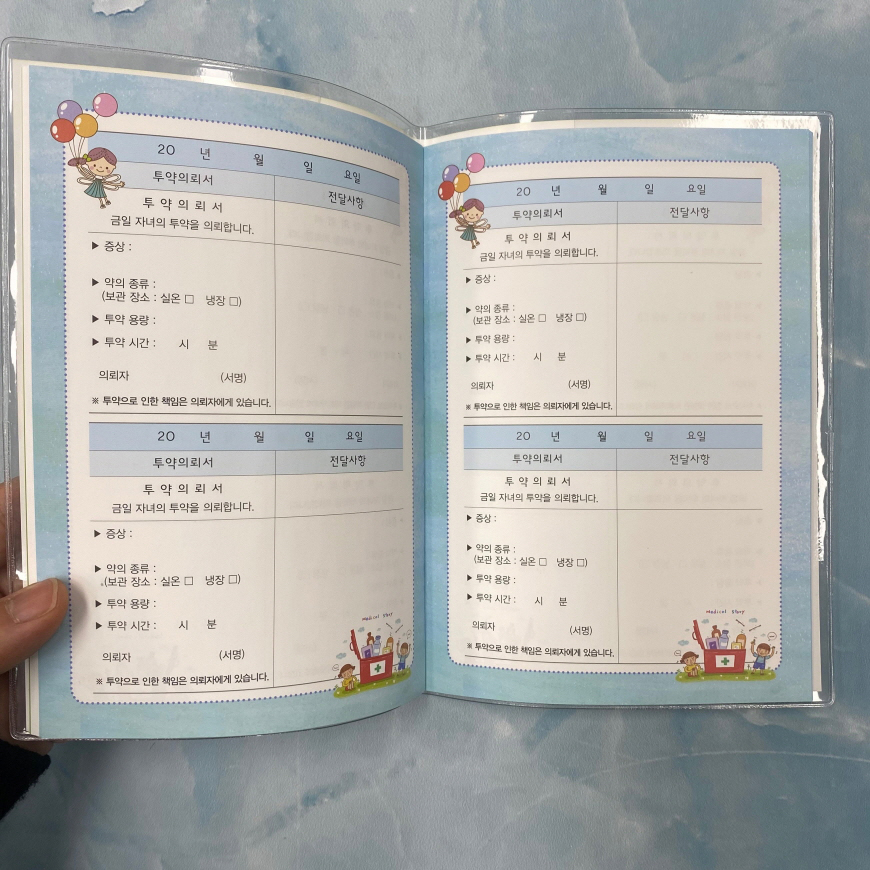 20 년 월 일 요일
투약의뢰서 전달사항
투 약 의 뢰 서
금일 자녀의 투약을 의뢰합니다.
▶ 증상 :
▶ 약의 종류 :
(보관 장소 : 실온 □ 냉장 □)
▶ 투약 용량 :
▶ 투약 시간 : 시 분
의뢰자 (서명)
※ 투약으로 인한 책임은 의뢰자에게 있습니다.
20 년 월 일 요일
투약의뢰서 전달사항
투 약 의 뢰 서
금일 자녀의 투약을 의뢰합니다.
▶ 증상 :
▶ 약의 종류 :
(보관 장소 : 실온 □ 냉장 □)
▶ 투약 용량 :
▶ 투약 시간 : 시 분
의뢰자 (서명)
※ 투약으로 인한 책임은 의뢰자에게 있습니다.
Medical Story
20 년 월 일 요일
투약의뢰서 전달사항
투 약 의 뢰 서
금일 자녀의 투약을 의뢰합니다.
▶ 증상 :
▶ 약의 종류 :
(보관 장소 : 실온 □ 냉장 □)
▶ 투약 용량 :
▶ 투약 시간 : 시 분
의뢰자 (서명)
※ 투약으로 인한 책임은 의뢰자에게 있습니다.
20 년 월 일 요일
투약의뢰서 전달사항
투 약 의 뢰 서
금일 자녀의 투약을 의뢰합니다.
▶ 증상 :
▶ 약의 종류 :
(보관 장소 : 실온 □ 냉장 □)
▶ 투약 용량 :
▶ 투약 시간 : 시 분
의뢰자 (서명)
※ 투약으로 인한 책임은 의뢰자에게 있습니다.
Medical Story